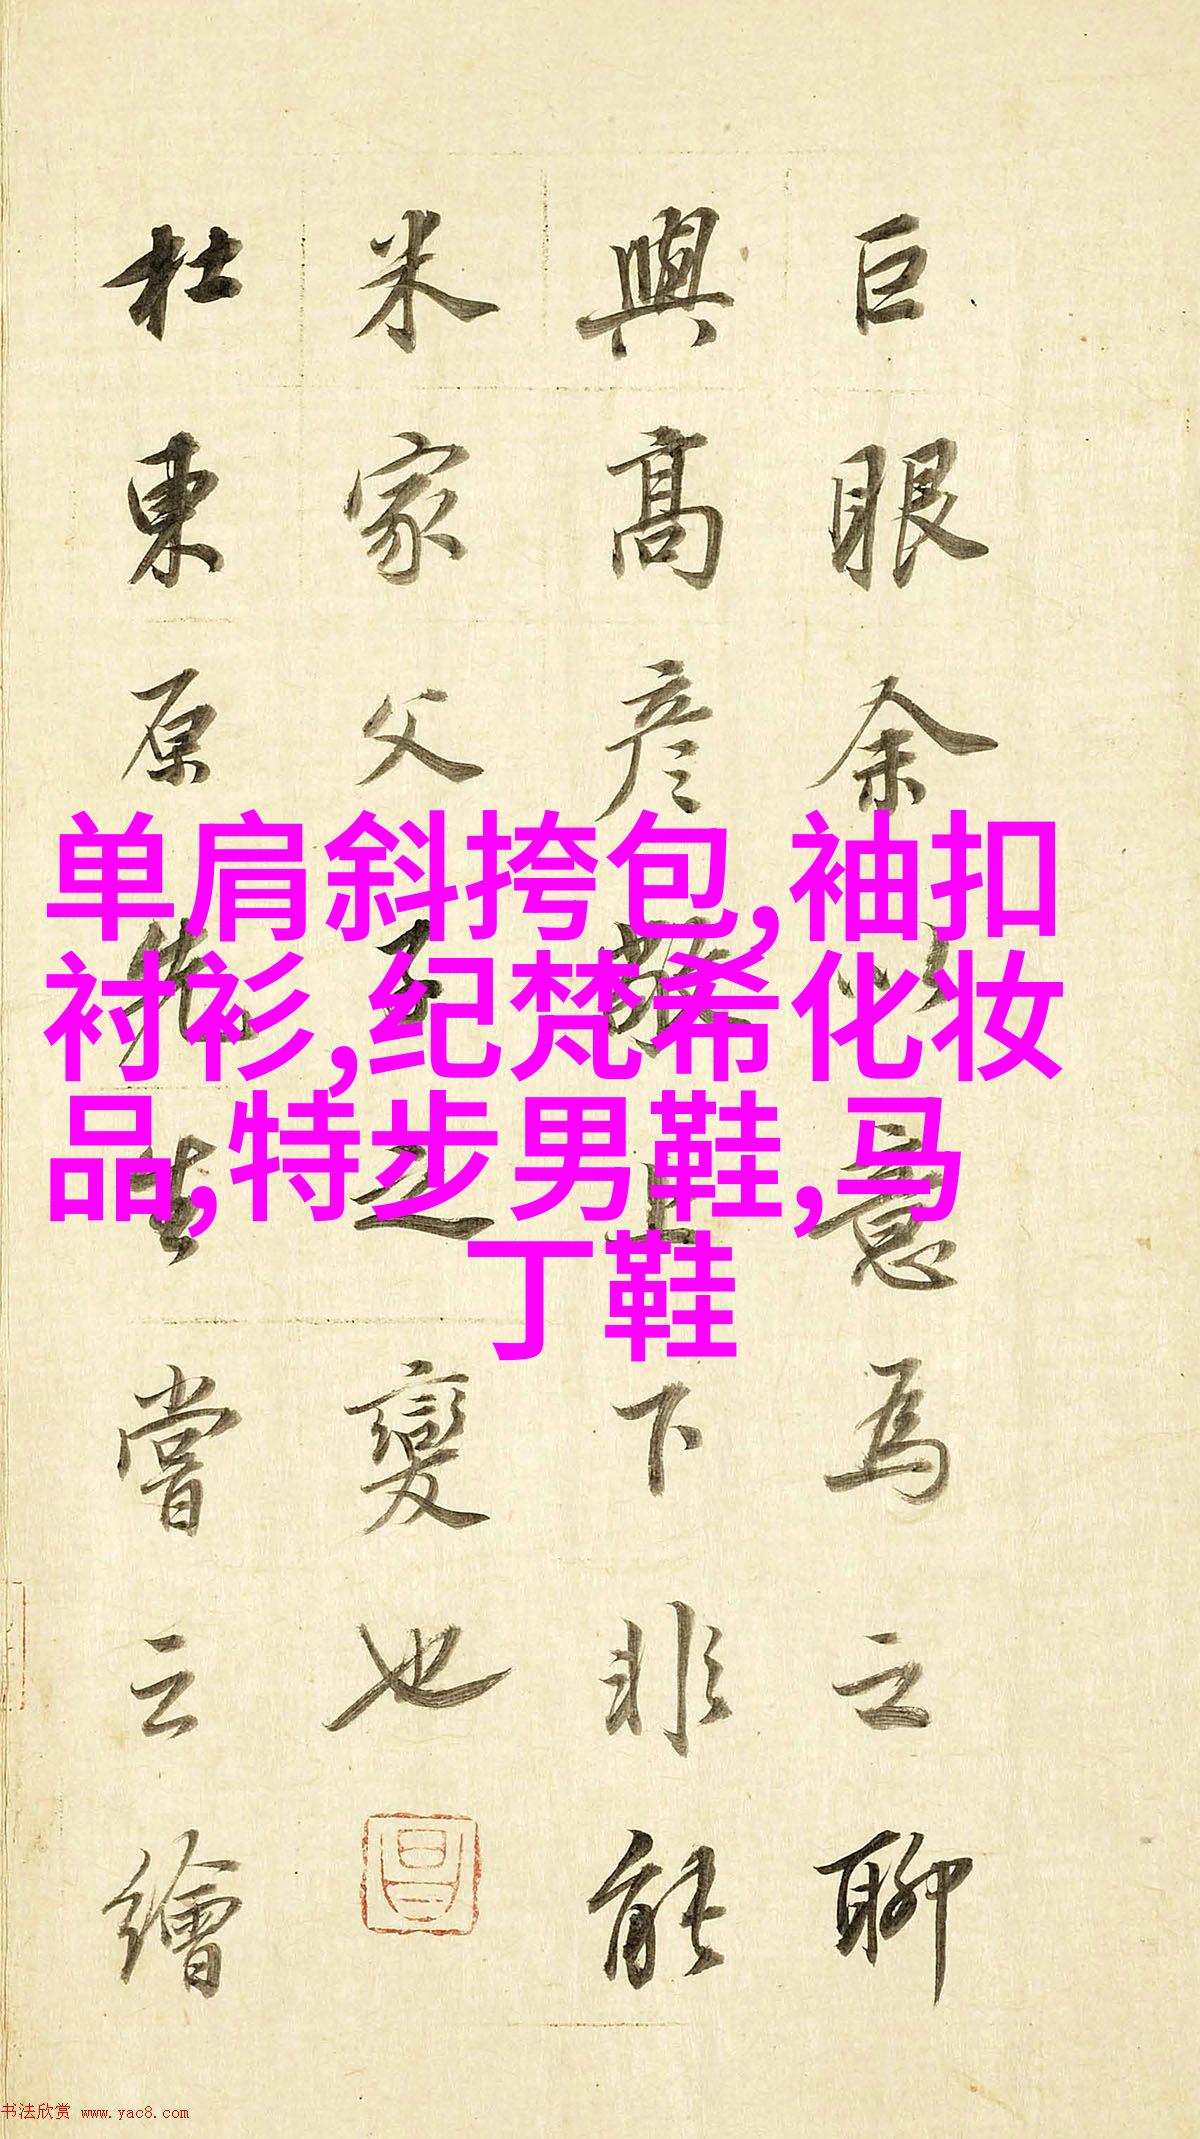 巨眼余以意為之聊
與高彥敬上下非能
米家父子之變也
昌
杜東原先生嘗云繪
单肩斜挎包,袖扣
衬衫,纪梵希化妆
品,特步男鞋,马
丁鞋
书法欣赏 www.yac8.com